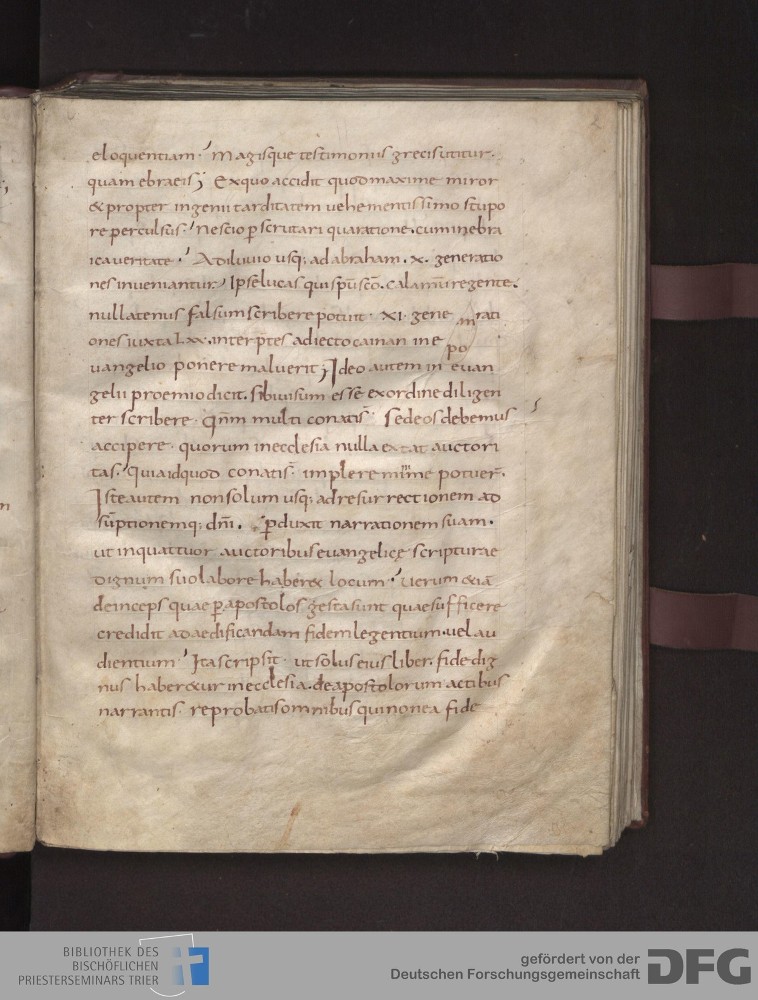 eloquentiam· Magisque testimoniis grecis utitur·
quam ebraeis; Ex quo accidit quod maxime miror
& propter ingenii tarditatem vehementissimo stupo
re perculsus· Nescio p scrutari qua ratione· cum in ebra
ica veritate· A diluvio usq; ad abraham· x· generatio
nes inveniantur· Ipse lucas qui sps sco· calamum regente·
nullatenus falsum scribere potuit· xi· gene rati
ones iuxta lxx· interptes adiecto cainan in e
vangelio ponere maluerit; Ideo autem in evan
gelii proemio dicit· sibi visum esse ex ordine diligen
ter scribere· qnm multi conati s· Sed eos debemus
accipere· quorum in ecclesia nulla extat auctori
tas· quia id quod conati s· implere minime potuer·
Iste autem non solum usq; ad resurrectionem ad
sūptionemq; dni· pduxit narrationem suam·
ut in quattuor auctoribus evangelice scripturae
dignum suo labore haber& locum· Verum &iā
deinceps quae p apostolos gesta sunt quae sufficere
credidit ad aedificandam fidem legentium· vel au
dientium· Ita scripsit· ut solus eius liber· fide dig
nus haber&ur in ecclesia· de apostolorum actibus
narrantis· reprobatis omnibus qui non ea fide
BIBLIOTHEK DES
BISCHÖFLICHEN
PRIESTERSEMINARS TRIER
gefördert von der
Deutschen Forschungsgemeinschaft
DFG